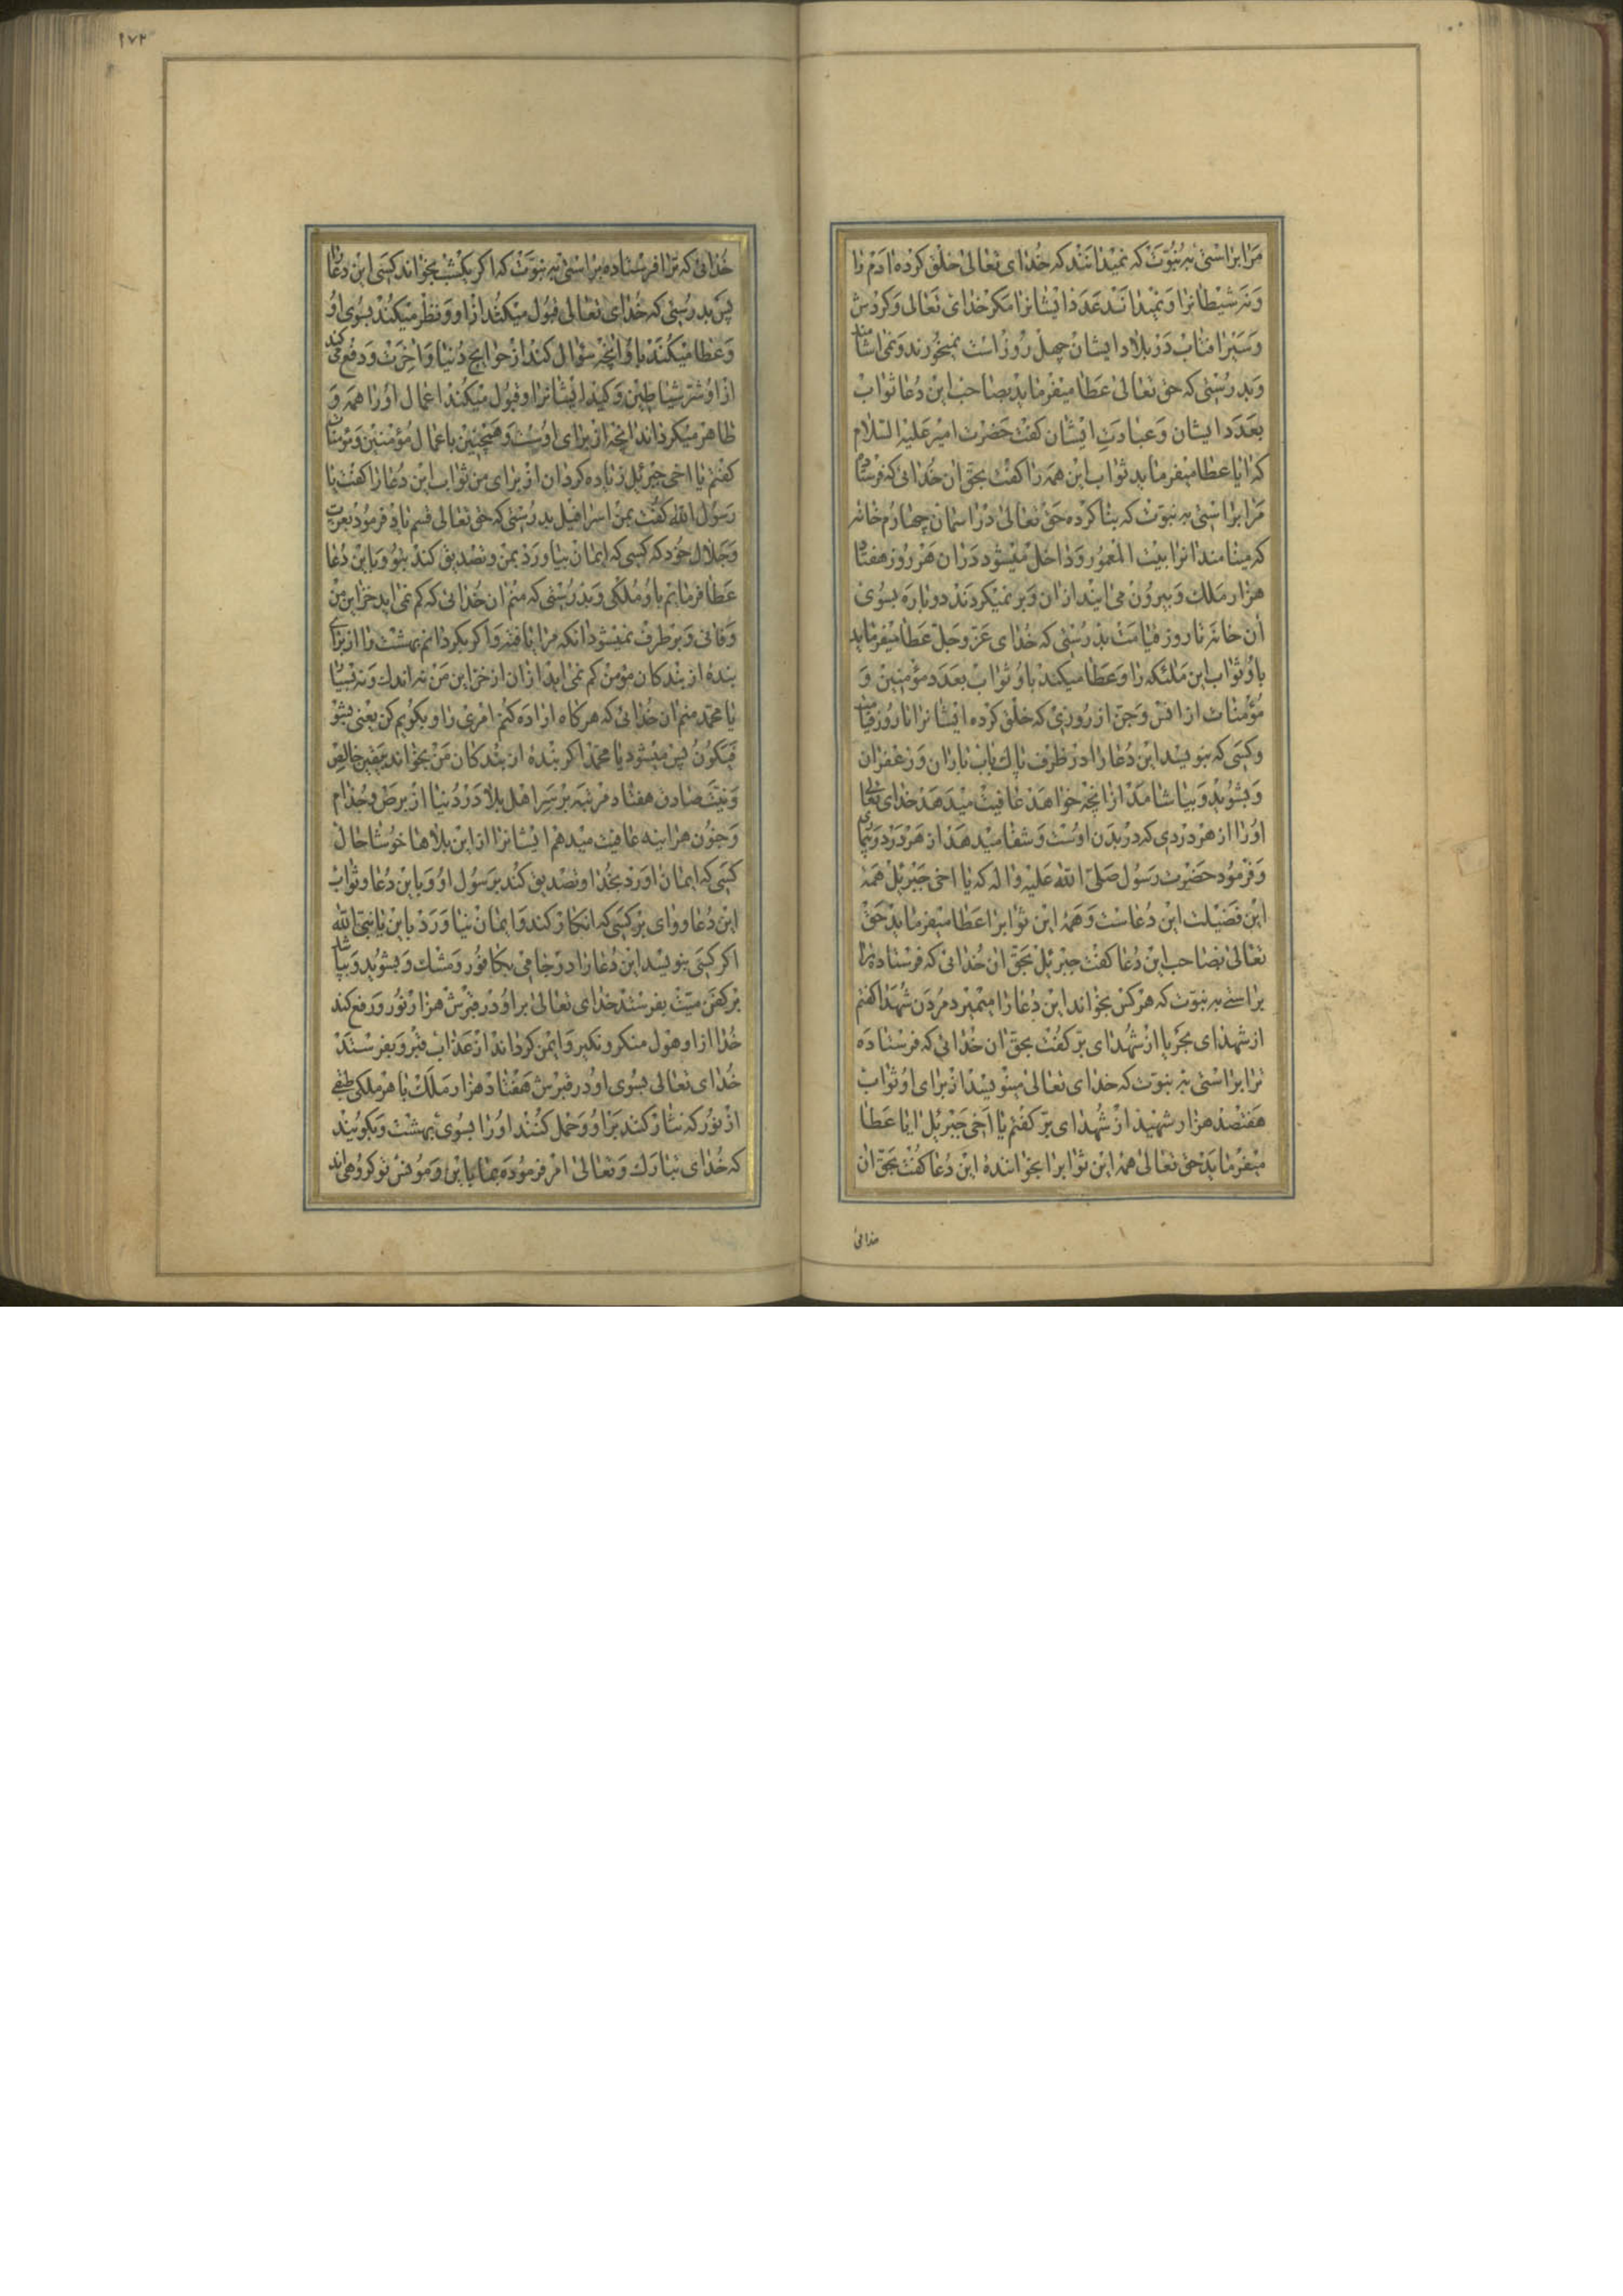 مرا براستی به نبوت که نمیدانند که خدای تعالی خلق کرده ادم را
و نه شیطانرا و نمیدانند عدد ایشانرا مکر خدای تعالی و کردش
و سیر افتاب در بلاد ایشان چهل روز است نمیخورند و نمی اشامند
و بدرستی که حق تعالی عطا میفرماید بصاحب این دعا ثواب
بعدد ایشان و عبادت ایشان کفت حضرت امیر علیه السلام
که ایا عطا میفرماید ثواب این همه را کفت بحق ان خدائی که فرستاده
مرا براستی به نبوت که بنا کرده حق تعالی در اسمان چهارم خانه
که مینامند انرا بیت المعمور و داخل میشود دران هر روز هفتاد
هزار ملک و بیرون می ایند ازان و بر نمیکردند دوباره بسوی
آن خانه تا روز قیامت بدرستی که خدای عز و جل عطا میفرماید
باو ثواب این ملئکه را و عطا میکند باو ثواب بعدد مؤمنین و
مؤمنات از انس و جن از روزی که خلق کرده ایشانرا تا روز قیامت
و کسی که بنویسد این دعا را در ظرف پاک باب باران و زعفران
و بشوید و بیاشامد از انچه خواهد عافیت میدهد خدای تعالی
اورا از هر دردی که در بدن اوست و شفا میدهد از هر درد و بیماری
و فرمود حضرت رسول صلی الله علیه و اله که یا اخی جبرئیل همه
این فضیلت این دعاست و همه این ثوابرا عطا میفرماید حق
تعالی بصاحب این دعا کفت جبرئیل بحق ان خدائی که فرستاده ترا
براستی به نبوت که هر کس بخواند این دعا را میمیرد مردن شهدا کفتم
از شهدای بحر یا از شهدای بر کفت بحق ان خدائی که فرستاده
ترا براستی به نبوت که خدای تعالی مینویسد از برای او ثواب
هفتصد هزار شهید از شهدای بر کفتم یا اخی جبرئیل ایا عطا
میفرماید حق تعالی همه این ثوابرا بخواننده این دعا کفت بحق ان
خدائی
۱۷۲
خدائی که ترا فرستاده براستی به نبوت که اکر یکشب بخواند کسی این دعا را
پس بدرستی که خدای تعالی قبول میکند ازاو و نظر میکند بسوی او
و عطا میکند باو انچه سؤال کند از حوایج دنیا و اخرت و دفع می کند
ازاو شر شیاطین و کید ایشانرا و قبول میکند اعمال اورا همه و
ظاهر میکرداند انچه از برای اوست و همچنین با اعمال مؤمنین و مؤمنات
کفتم یا اخی جبرئیل زیاده کردان از برای من ثواب این دعا را کفت یا
رسول الله کفت بمن اسرافیل بدرستی که حق تعالی قسم یاد فرمود بعزت
و جلال خود که کسی که ایمان بیاورد بمن و تصدیق کند بتو و باین دعا
عطا فرمایم باو ملکی و بدرستی که منم ان خدائی که کم نمی اید خزاین من
و فانی و برطرف نمیشود انکه مرا یافته و اکر بکردانم بهشت را از برای
بنده از بندکان مؤمن کم نمی اید ازان از خزاین من نه اندک و نه بسیار
یا محمد منم ان خدائی که هر کاه اراده کنم امری را و بکویم کن یعنی بشو
فیکون پس میشود یا محمد اکر بنده از بندکان من بخواند بیقین خالص
و نیت صادق هفتاد مرتبه بر سر اهل بلا در دنیا از برص و جذام
و جنون هراینه عافیت میدهم ایشانرا ازاین بلاها خوشا حال
کسی که ایمان اورد بخدا و تصدیق کند برسول او و باین دعا و ثواب
این دعا و وای بر کسی که انکار کند و ایمان نیاورد باین یا نبی الله
اکر کسی بنویسد این دعا را در جامی بکافور و مشک و بشوید و بپاشد
بر کفن میت بفرستد خدای تعالی براو در قبرش هزار نور و رفع کند
خدا ازاو هول منکر و نکیر و ایمن کرداند از عذاب قبر و بفرستد
خدای تعالی بسوی او در قبرش هفتاد هزار ملک با هر ملکی طبقی
از نور که نثار کند براو و حمل کنند اورا بسوی بهشت و بکویند
که خدای تبارک و تعالی امر فرموده بما باین و مونس تو کروهی اند